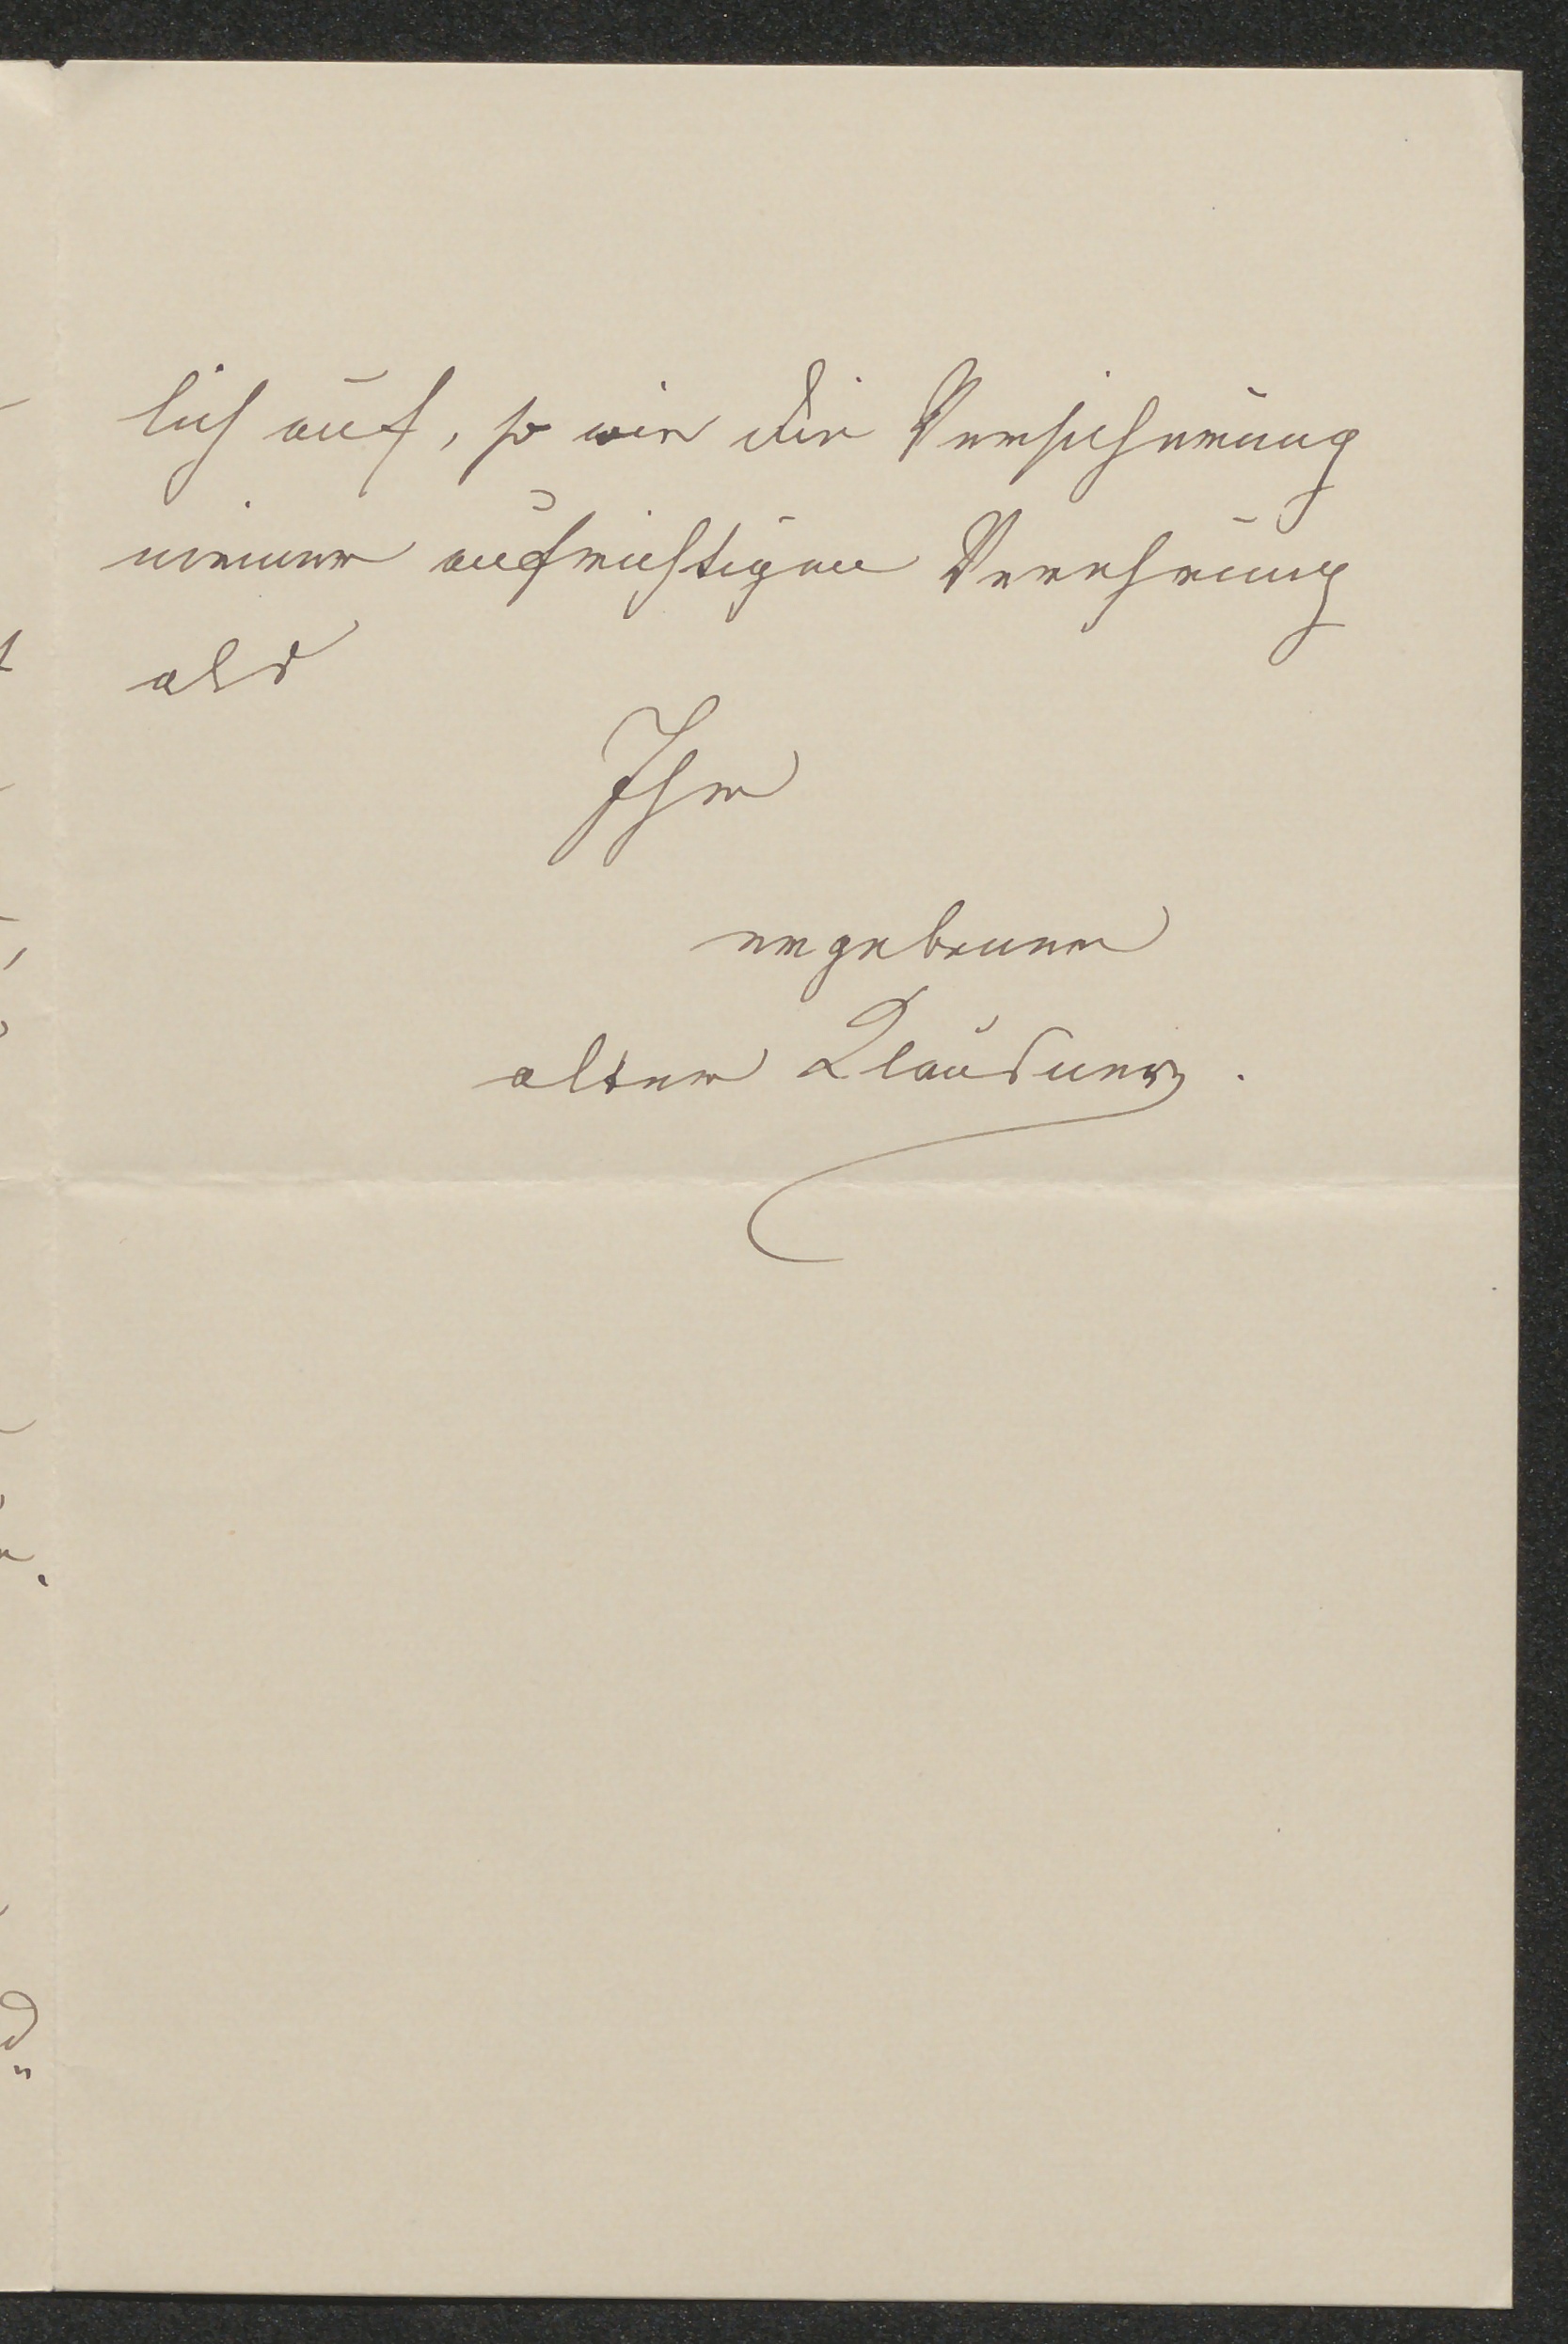 lich auf, so wie die Versicherung
meiner aufrichtigen Verehrung
als
Ihr
ergebener
alter Klausner.